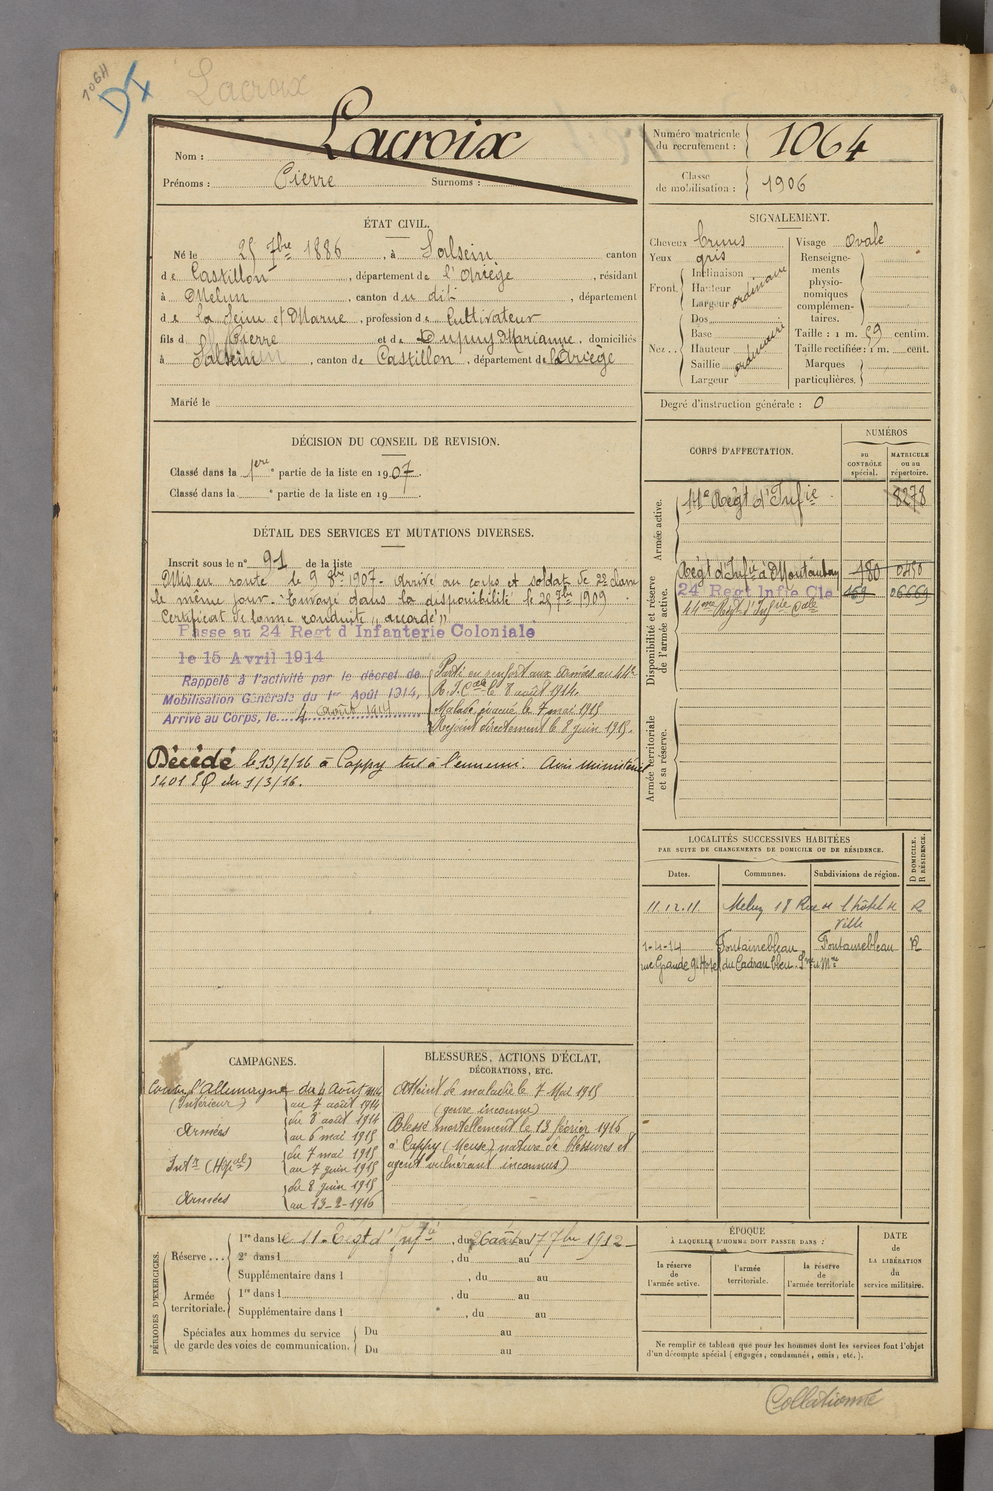 106H
DI
Lacroix
Nom : Lacroix
Prénoms : Pierre Surnoms :
Numéro matricule du recrutement : 1064
Classe de mobilisation : 1906
ÉTAT CIVIL.
Né le 25 7bre 1886, à Salsein, canton
de Castillon, département de l'Ariège, résidant
à Melun, canton du dit, département
de la Seine et Marne, profession de Cultivateur
fils de Pierre et de Dupuy Marianne, domiciliés
à Salsein, canton de Castillon, département de l'Ariège
Marié le
SIGNALEMENT.
Cheveux bruns
Yeux gris
Front. Inclinaison
Hauteur ordinaire
Largeur
Nez. Dos
Base
Hauteur ordinaire
Saillie
Largeur
Visage ovale
Renseigne-
ments
physio-
nomiques
complémen-
taires.
Taille : 1 m. 59 centim.
Taille rectifiée : 1 m. cent.
Marques
particulières.
Degré d'instruction générale : 0
DÉCISION DU CONSEIL DE REVISION.
Classé dans la 1ere partie de la liste en 1907.
Classé dans la e partie de la liste en 19
DÉTAIL DES SERVICES ET MUTATIONS DIVERSES.
Inscrit sous le n° 91 de la liste
Mis en route le 9 8bre 1907. Arrivé au corps et soldat de 2e classe
le même jour. Envoyé dans la disponibilité le 25 7bre 1909.
Certificat de bonne conduite "accordé"
Passe au 24 Regt d'Infanterie Coloniale
le 15 Avril 1914
Rappelé à l'activité par le décret de
Mobilisation Générale du 1er Août 1914,
Arrivé au Corps, le 4 Août 1914
Parti en renfort aux armées au 44e
R.I.Cale le 8 août 1914.
Malade évacué le 7 mai 1915
Rejoint directement le 8 juin 1915.
Décédé le 13/2/16 à Cappy tué à l'ennemi. Avis ministériel
du 1/3/16.
CORPS D'AFFECTATION.
NUMÉROS
au CONTRÔLE spécial.
MATRICULE ou au répertoire.
Armée active.
11e Régt d'Infie 8278
Disponibilité et réserve de l'armée active.
Régt d'Infie à Montauban 480 0480
24 Regt Infie Cle 169 06669
44ème Régt d'Infie Cale
Armée territoriale et sa réserve.
LOCALITÉS SUCCESSIVES HABITÉES
PAR SUITE DE CHANGEMENTS DE DOMICILE OU DE RÉSIDENCE.
Dates. Communes. Subdivisions de région. D DOMICILE. R RÉSIDENCE.
11.12.11 Melun 18 Rue de l'hôtel de R
Ville
1-4-14 Fontainebleau Fontainebleau R
rue Grande gd Hotel du Cadran bleu. Sne et Mne
CAMPAGNES.
Contre l'Allemagne du 4 Août 1914
(Intérieur) au 7 août 1914
Armées du 8 août 1914
au 6 mai 1915
Intr (Hôpal) du 7 mai 1915
au 7 juin 1915
Armées du 8 juin 1915
au 13-2-1916
BLESSURES, ACTIONS D'ÉCLAT,
DÉCORATIONS, ETC.
Atteint de maladie le 7 Mai 1915
(genre inconnu)
Blessé mortellement le 13 février 1916
à Cappy (Meuse) nature de blessures et
agent vulnérant inconnus)
PÉRIODES D'EXERCICES.
Réserve . . . 1re dans le 11e Régt d'Infie, du 26 août au 17 7bre 1912
2e dans l , du au
Supplémentaire dans l , du au
Armée territoriale. 1re dans l , du au
Supplémentaire dans l , du au
Spéciales aux hommes du service Du au
de garde des voies de communication. Du au
ÉPOQUE
À LAQUELLE L'HOMME DOIT PASSER DANS :
la réserve de l'armée active.
l'armée territoriale.
la réserve de l'armée territoriale
DATE
de
LA LIBÉRATION
du
service militaire.
Ne remplir ce tableau que pour les hommes dont les services font l'objet
d'un décompte spécial (engagés, condamnés, omis, etc.).
Collationné